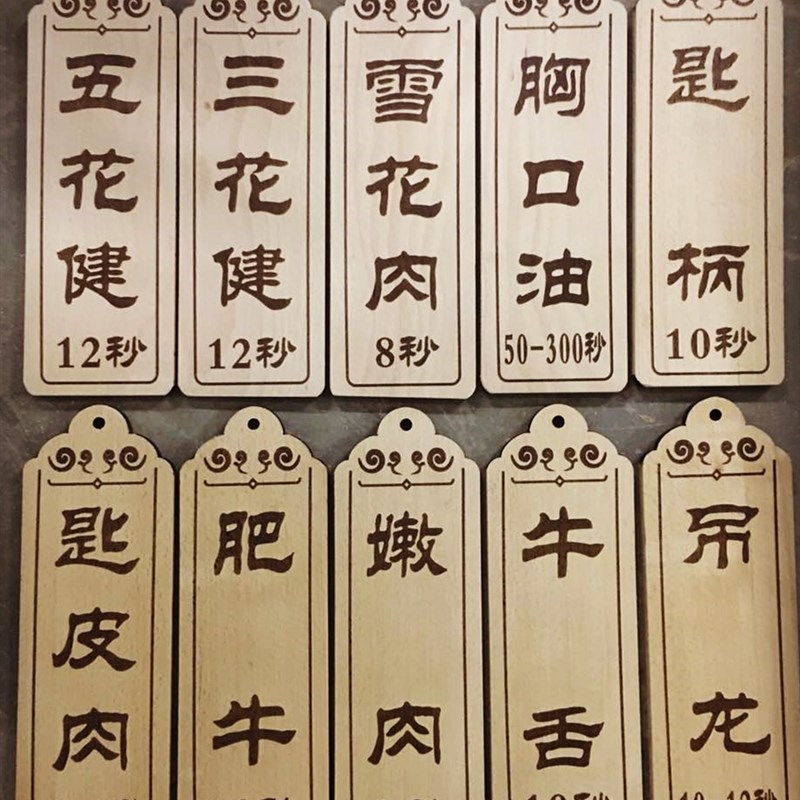 五花健
12秒
三花健
12秒
雪花肉
8秒
胸口油
50-300秒
匙柄
10秒
匙皮肉
肥牛
嫩肉
牛舌
吊龙